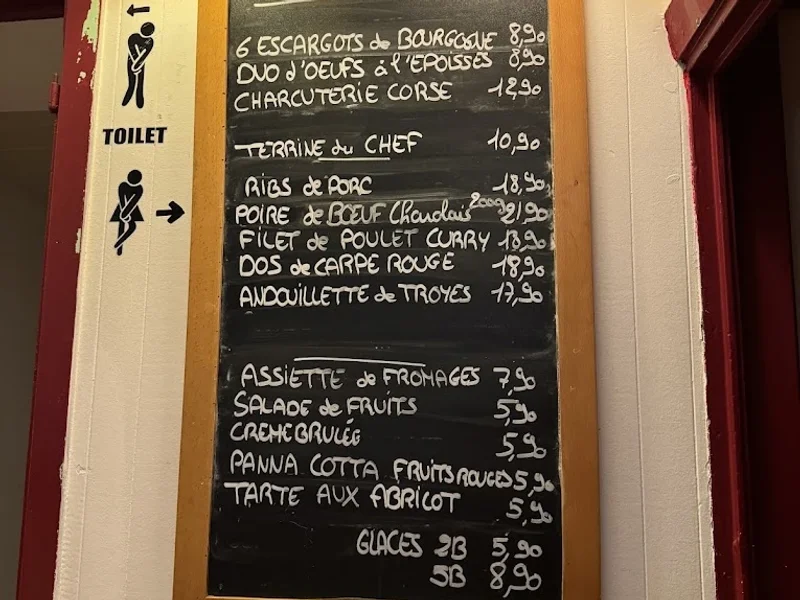 TOILET
6 ESCARGOTS de BOURGOGNE 8,90
DUO d'OEUFS à l'EPOISSES 8,90
CHARCUTERIE CORSE 12,90
TERRINE du CHEF 10,90
RIBS de PORC 18,90
POIRE de BŒUF Charolais 200g 21,90
FILET de POULET CURRY 13,90
DOS de CARPE ROUGE 18,90
ANDOUILLETTE de TROYES 17,90
ASSIETTE de FROMAGES 7,90
SALADE de FRUITS 5,90
CREME BRULÉE 5,90
PANNA COTTA FRUITS ROUGES 5,90
TARTE AUX ABRICOT 5,90
GLACES 2B 5,90
5B 8,90